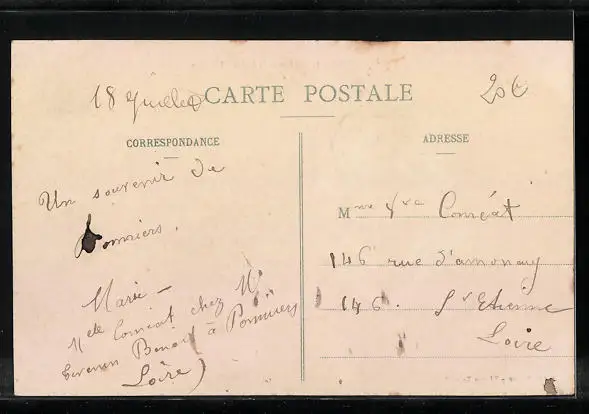 18 Juillet CARTE POSTALE 20€
CORRESPONDANCE
Un souvenir de
Pommiers.
Marie
Mlle Comeat chez M.
Benoit à Pommiers
Loire)
ADRESSE
Mme Vve Comeat
146 rue d'annonay
146. St Etienne
Loire